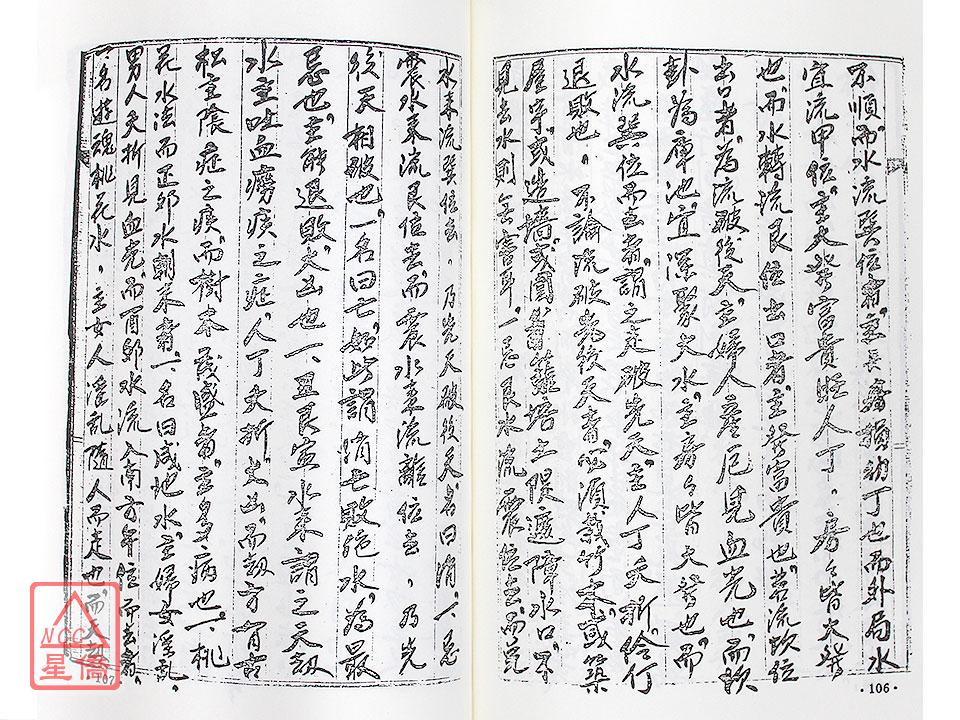 不順而水流巽位者主長房損幼丁也而外局水
宜流甲位主大發富貴旺人丁房々皆大發
也而水轉流艮位出口者主發富貴也若流坎位
出口者為流破後天主婦人產厄見血光也而坎
卦為庫池宜深聚大水主房々皆大發也而
水流巽位而去者謂之流破先天主人丁夭折伶仃
退敗也不論流破先後天者必須栽竹木或築
屋宇或造墻或圍籬培土以遮障水口不
見去水則無害耳一忌艮水流震位去而兌
106
水來流巽位去乃先天破後天名曰消一忌
震水來流艮位去而震水來流離位去乃先
後天相破也一名曰亡如此謂消亡敗絕水為最
忌也主能退敗大凶也一豆艮寅水來謂之天劫
水主吐血癆疾之症人丁夭折大凶而劫方有古
松主陰症之疾而樹木茂盛者主身病也一桃
花水法而正卯水朝來者一名曰咸池水主婦女淫亂
男人夭折見血光而酉卯水流入南方午位而去者
一名遊魂桃花水主女人淫乱隨人而走也而天劫
107
NCC
星僑